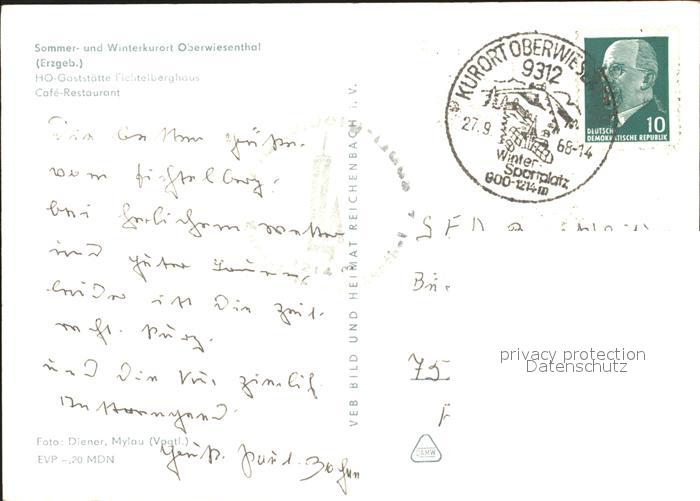 Sommer- und Winterkurort Oberwiesenthal
(Erzgeb.)
HO-Gaststätte Fichtelberghaus
Café-Restaurant
Die besten Grüße
vom Fichtelberg.
bei herlichem wetter
und guter Laune,
leider ist die Zeit
recht kurz.
und die Kur zimlich
Anstrengend.
Gruß. Paul
Foto: Diener, Mylau (Vogtl.)
EVP -,20 MDN
VEB BILD UND HEIMAT REICHENBACH i. V.
KURORT OBERWIESEN
9312
27.9. 68-14
Winter-
Sportplatz
900-1214 m
DEUTSCHE
DEMOKRATISCHE REPUBLIK
10
SED
75
privacy protection
Datenschutz